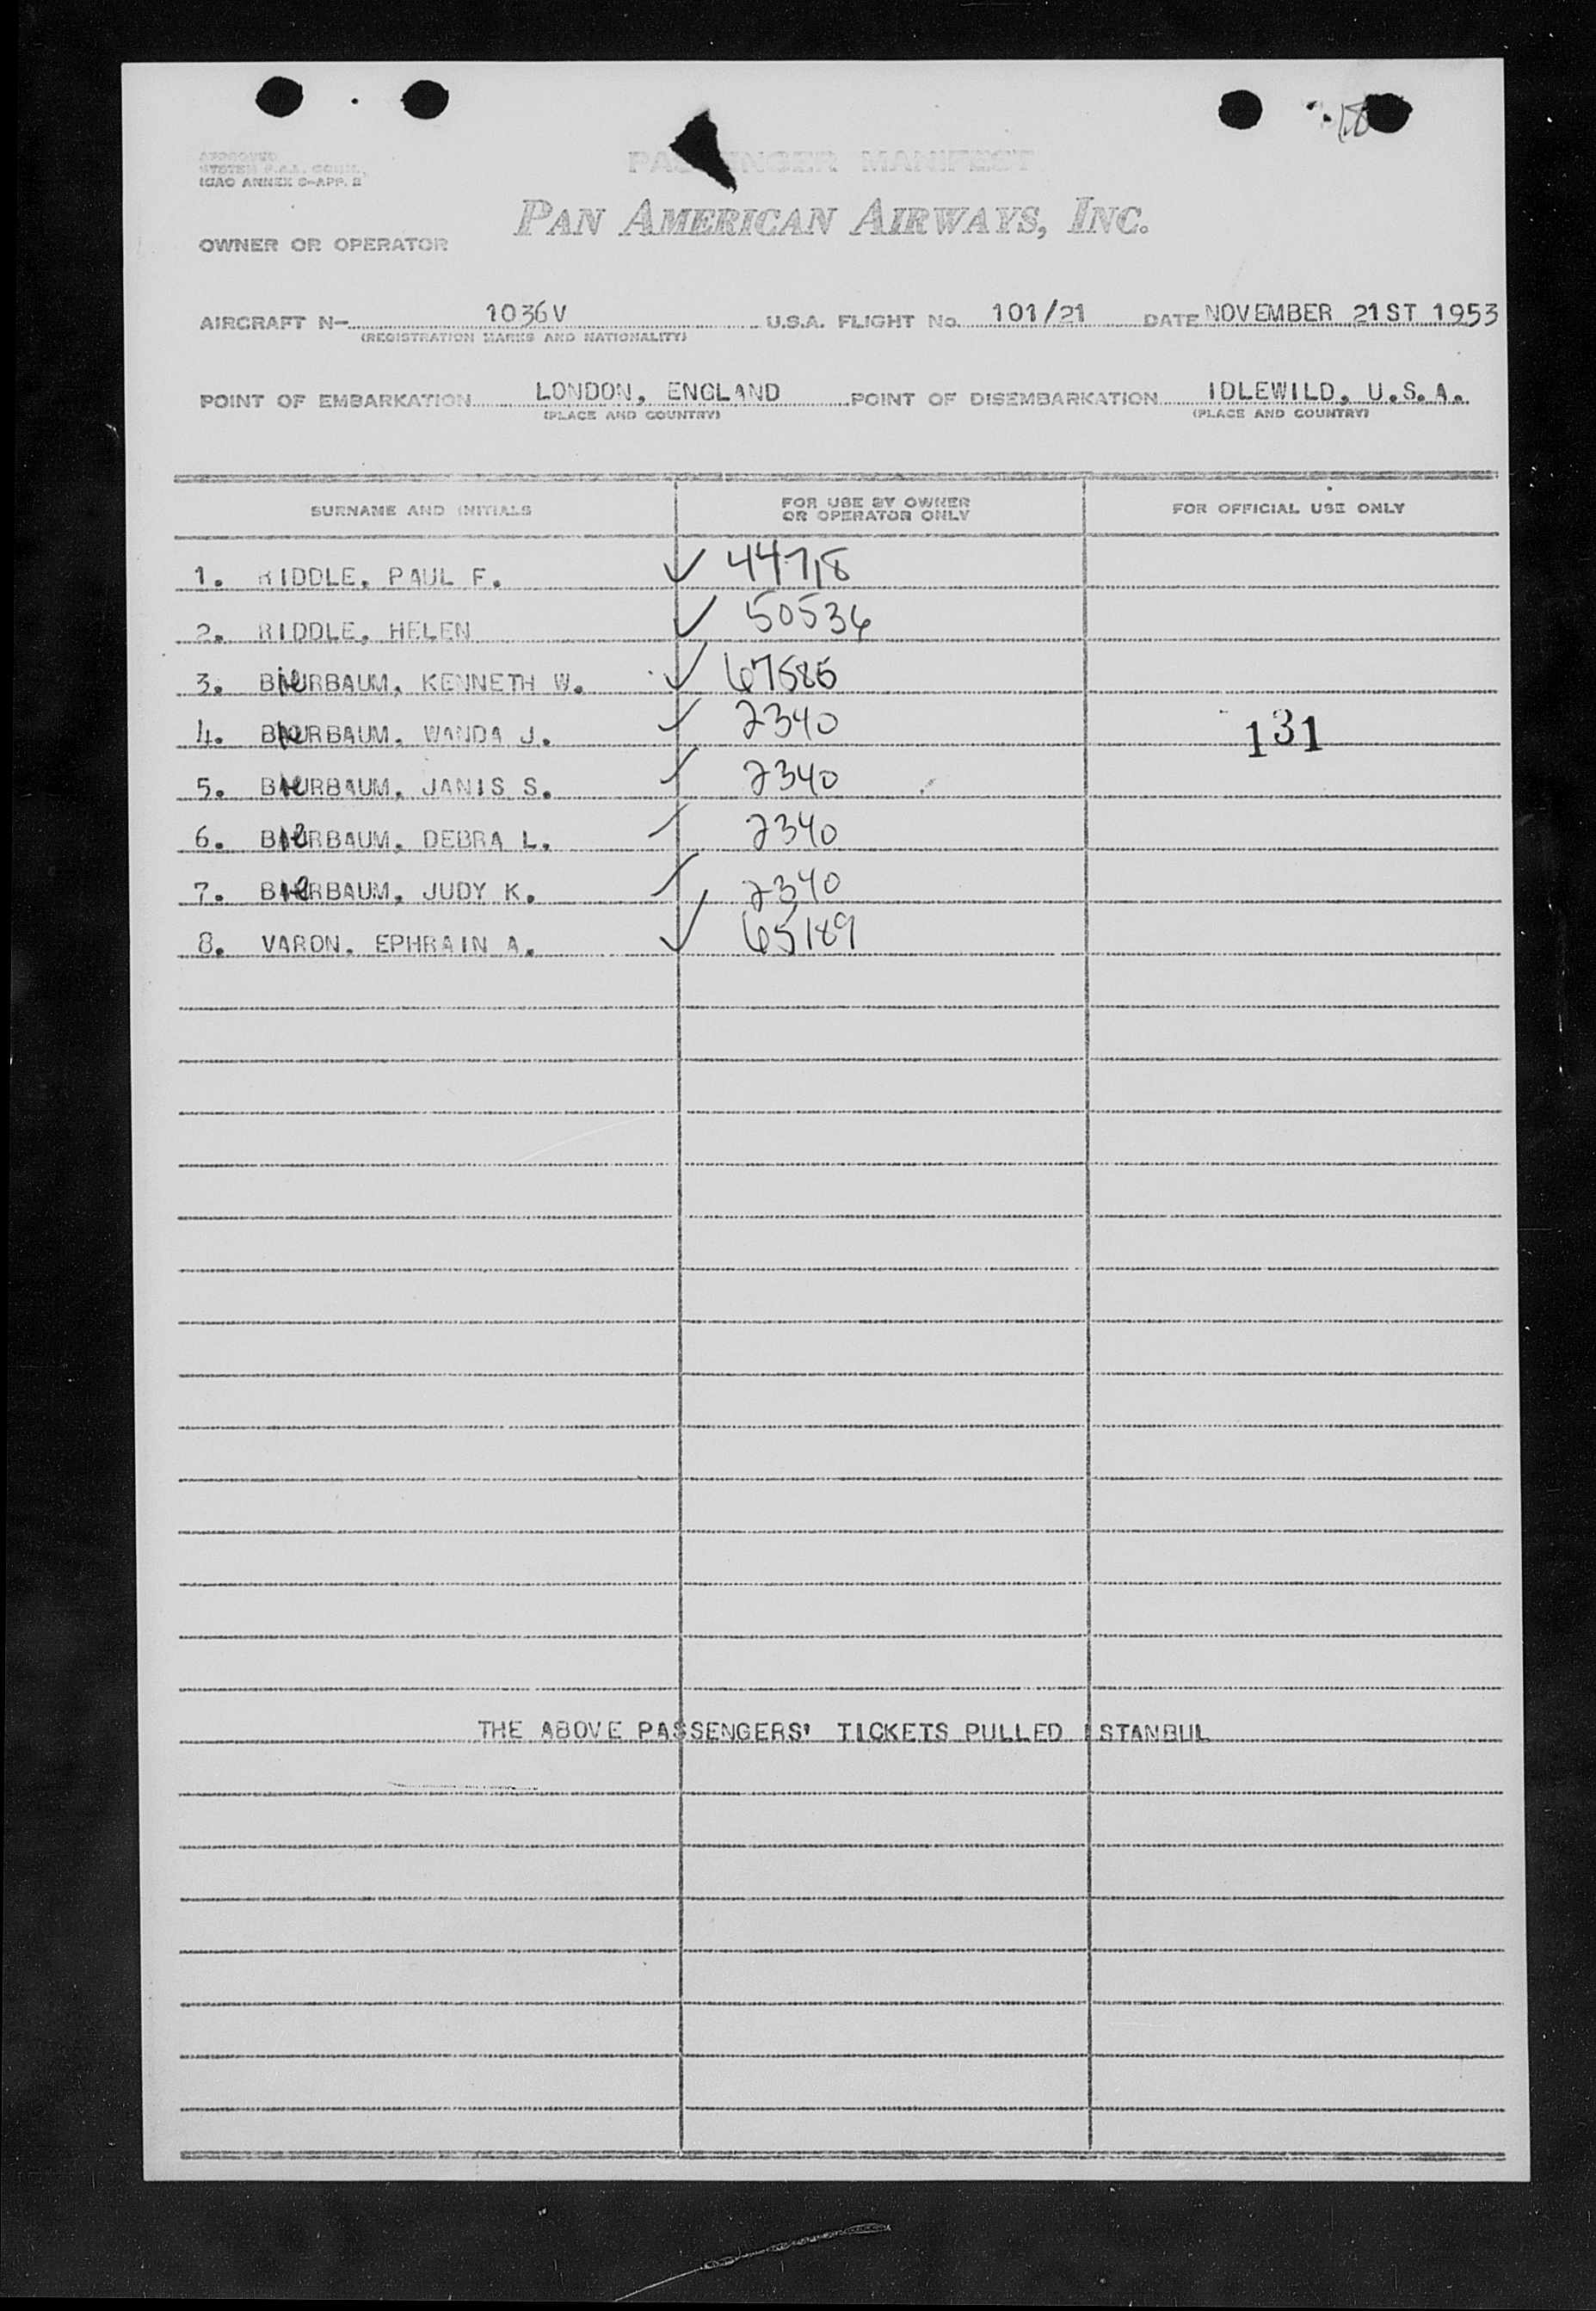 APPROVED
SYSTEM P.A.A. COMM.
ICAO ANNEX 9-APP. 2
PASSENGER MANIFEST
PAN AMERICAN AIRWAYS, INC.
OWNER OR OPERATOR
AIRCRAFT N- 1036V U.S.A. FLIGHT No. 101/21 DATE NOVEMBER 21ST 1953
(REGISTRATION MARKS AND NATIONALITY)
POINT OF EMBARKATION LONDON, ENGLAND POINT OF DISEMBARKATION IDLEWILD, U.S.A.
(PLACE AND COUNTRY) (PLACE AND COUNTRY)
SURNAME AND INITIALS FOR USE BY OWNER OR OPERATOR ONLY FOR OFFICIAL USE ONLY
1. RIDDLE, PAUL F. ✓ 44718
2. RIDDLE, HELEN ✓ 50536
3. BIERBAUM, KENNETH W. ✓ 67585
4. BIERBAUM, WANDA J. ✓ 2340 131
5. BIERBAUM, JANIS S. ✓ 2340
6. BIERBAUM, DEBRA L. ✓ 2340
7. BIERBAUM, JUDY K. ✓ 2340
8. VARON, EPHRAIN A. ✓ 65189
THE ABOVE PASSENGERS' TICKETS PULLED ISTANBUL